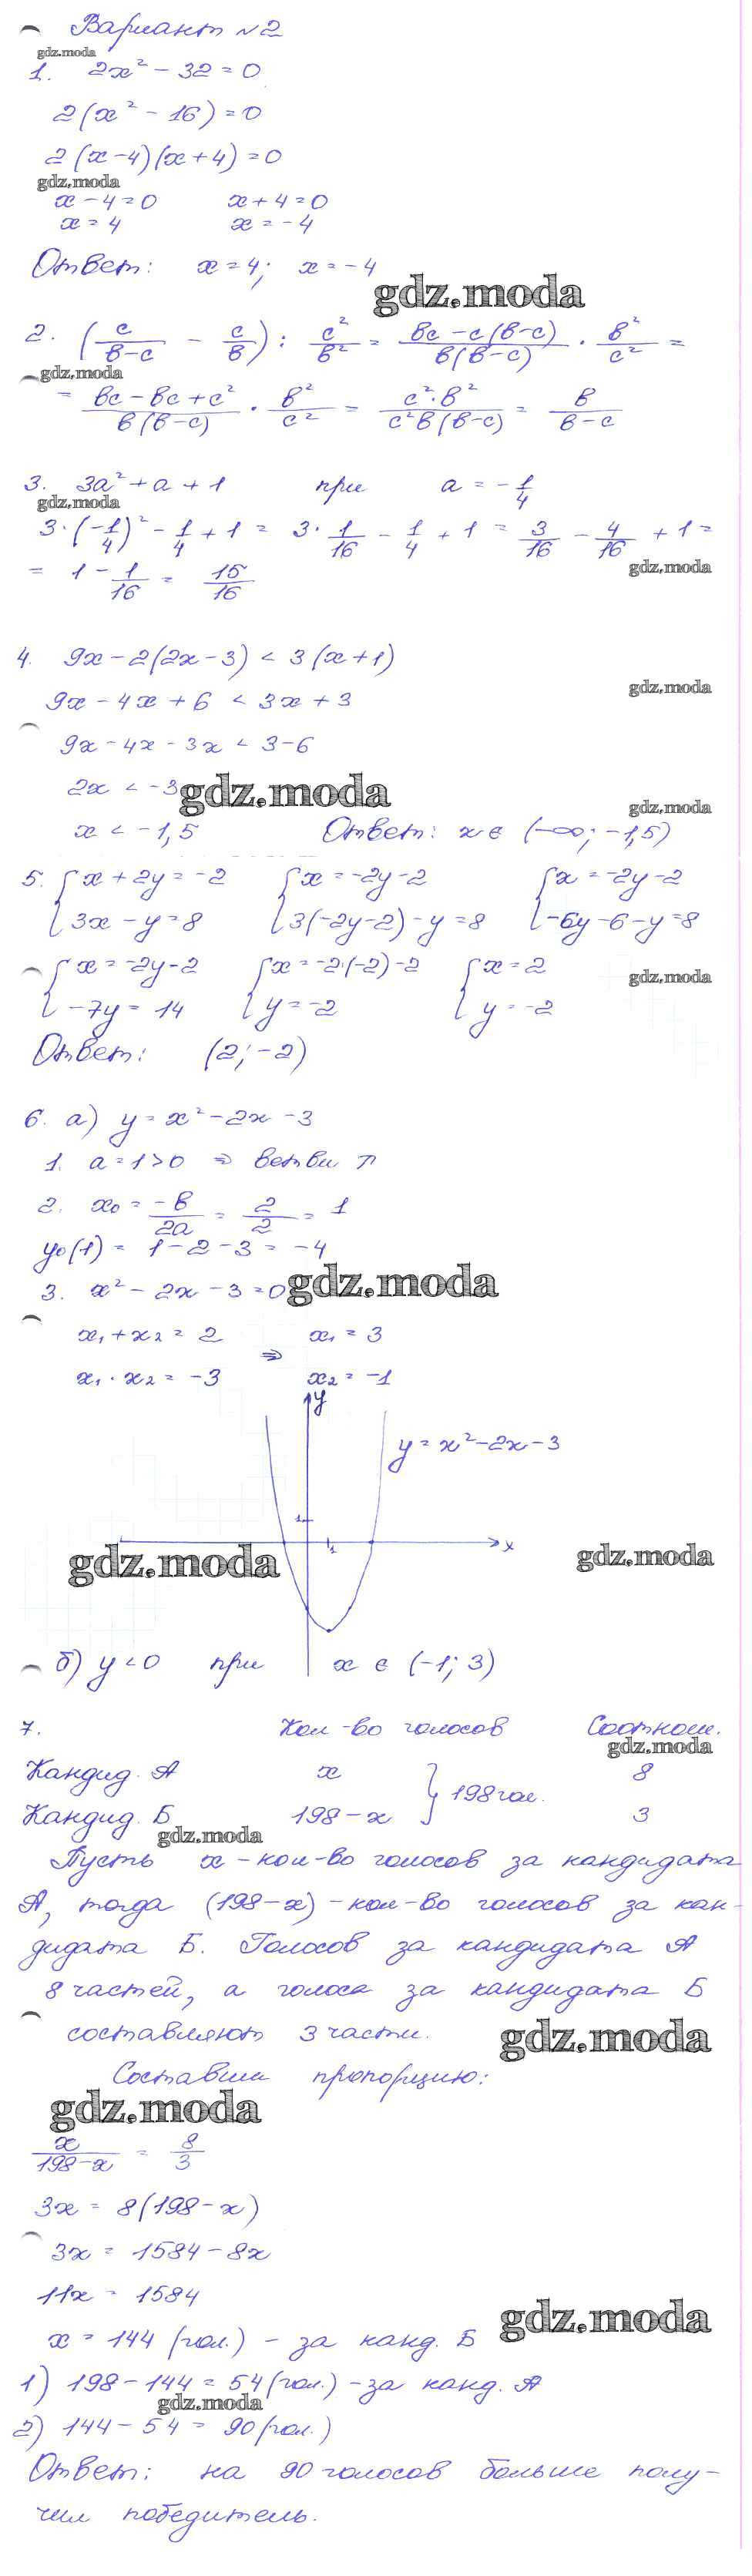 Вариант №2
gdz.moda
1. 2x² - 32 = 0
2(x² - 16) = 0
2(x-4)(x+4) = 0
gdz.moda
x - 4 = 0 x + 4 = 0
x = 4 x = -4
Ответ: x = 4; x = -4
gdz.moda
2. (c/(в-c) - c/в) : c²/в² = (вc - c(в-c))/(в(в-c)) · в²/c² =
gdz.moda
= (вc - вc + c²)/(в(в-c)) · в²/c² = (c²·в²)/(c²в(в-c)) = в/(в-c)
3. 3a² + a + 1 при a = -1/4
gdz.moda
3·(-1/4)² - 1/4 + 1 = 3·1/16 - 1/4 + 1 = 3/16 - 4/16 + 1 =
= 1 - 1/16 = 15/16
gdz.moda
4. 9x - 2(2x-3) < 3(x+1)
9x - 4x + 6 < 3x + 3
gdz.moda
9x - 4x - 3x < 3 - 6
2x < -3
gdz.moda
gdz.moda
x < -1,5 Ответ: x ∈ (-∞; -1,5)
5. { x + 2y = -2 { x = -2y - 2 { x = -2y - 2
{ 3x - y = 8 { 3(-2y-2) - y = 8 { -6y - 6 - y = 8
{ x = -2y - 2 { x = -2·(-2) - 2 { x = 2
gdz.moda
{ -7y = 14 { y = -2 { y = -2
Ответ: (2; -2)
6. а) y = x² - 2x - 3
1. a = 1 > 0 ⇒ ветви ↑
2. x₀ = -в/2a = 2/2 = 1
y₀(1) = 1 - 2 - 3 = -4
3. x² - 2x - 3 = 0
gdz.moda
x₁ + x₂ = 2 x₁ = 3
⇒
x₁ · x₂ = -3 x₂ = -1
y
y = x² - 2x - 3
1
1
x
gdz.moda
gdz.moda
б) y < 0 при x ∈ (-1; 3)
7. Кол-во голосов Соотнош.
gdz.moda
Кандид. А x } 198 гол. 8
Кандид. Б 198 - x 3
gdz.moda
Пусть x - кол-во голосов за кандидата
А, тогда (198-x) - кол-во голосов за кан-
дидата Б. Голосов за кандидата А
8 частей, а голоса за кандидата Б
составляют 3 части.
gdz.moda
Составим пропорцию:
gdz.moda
x/(198-x) = 8/3
3x = 8(198-x)
3x = 1584 - 8x
11x = 1584
gdz.moda
x = 144 (гол.) - за канд. Б
1) 198 - 144 = 54 (гол.) - за канд. А
gdz.moda
2) 144 - 54 = 90 (гол.)
Ответ: на 90 голосов больше полу-
чил победитель.